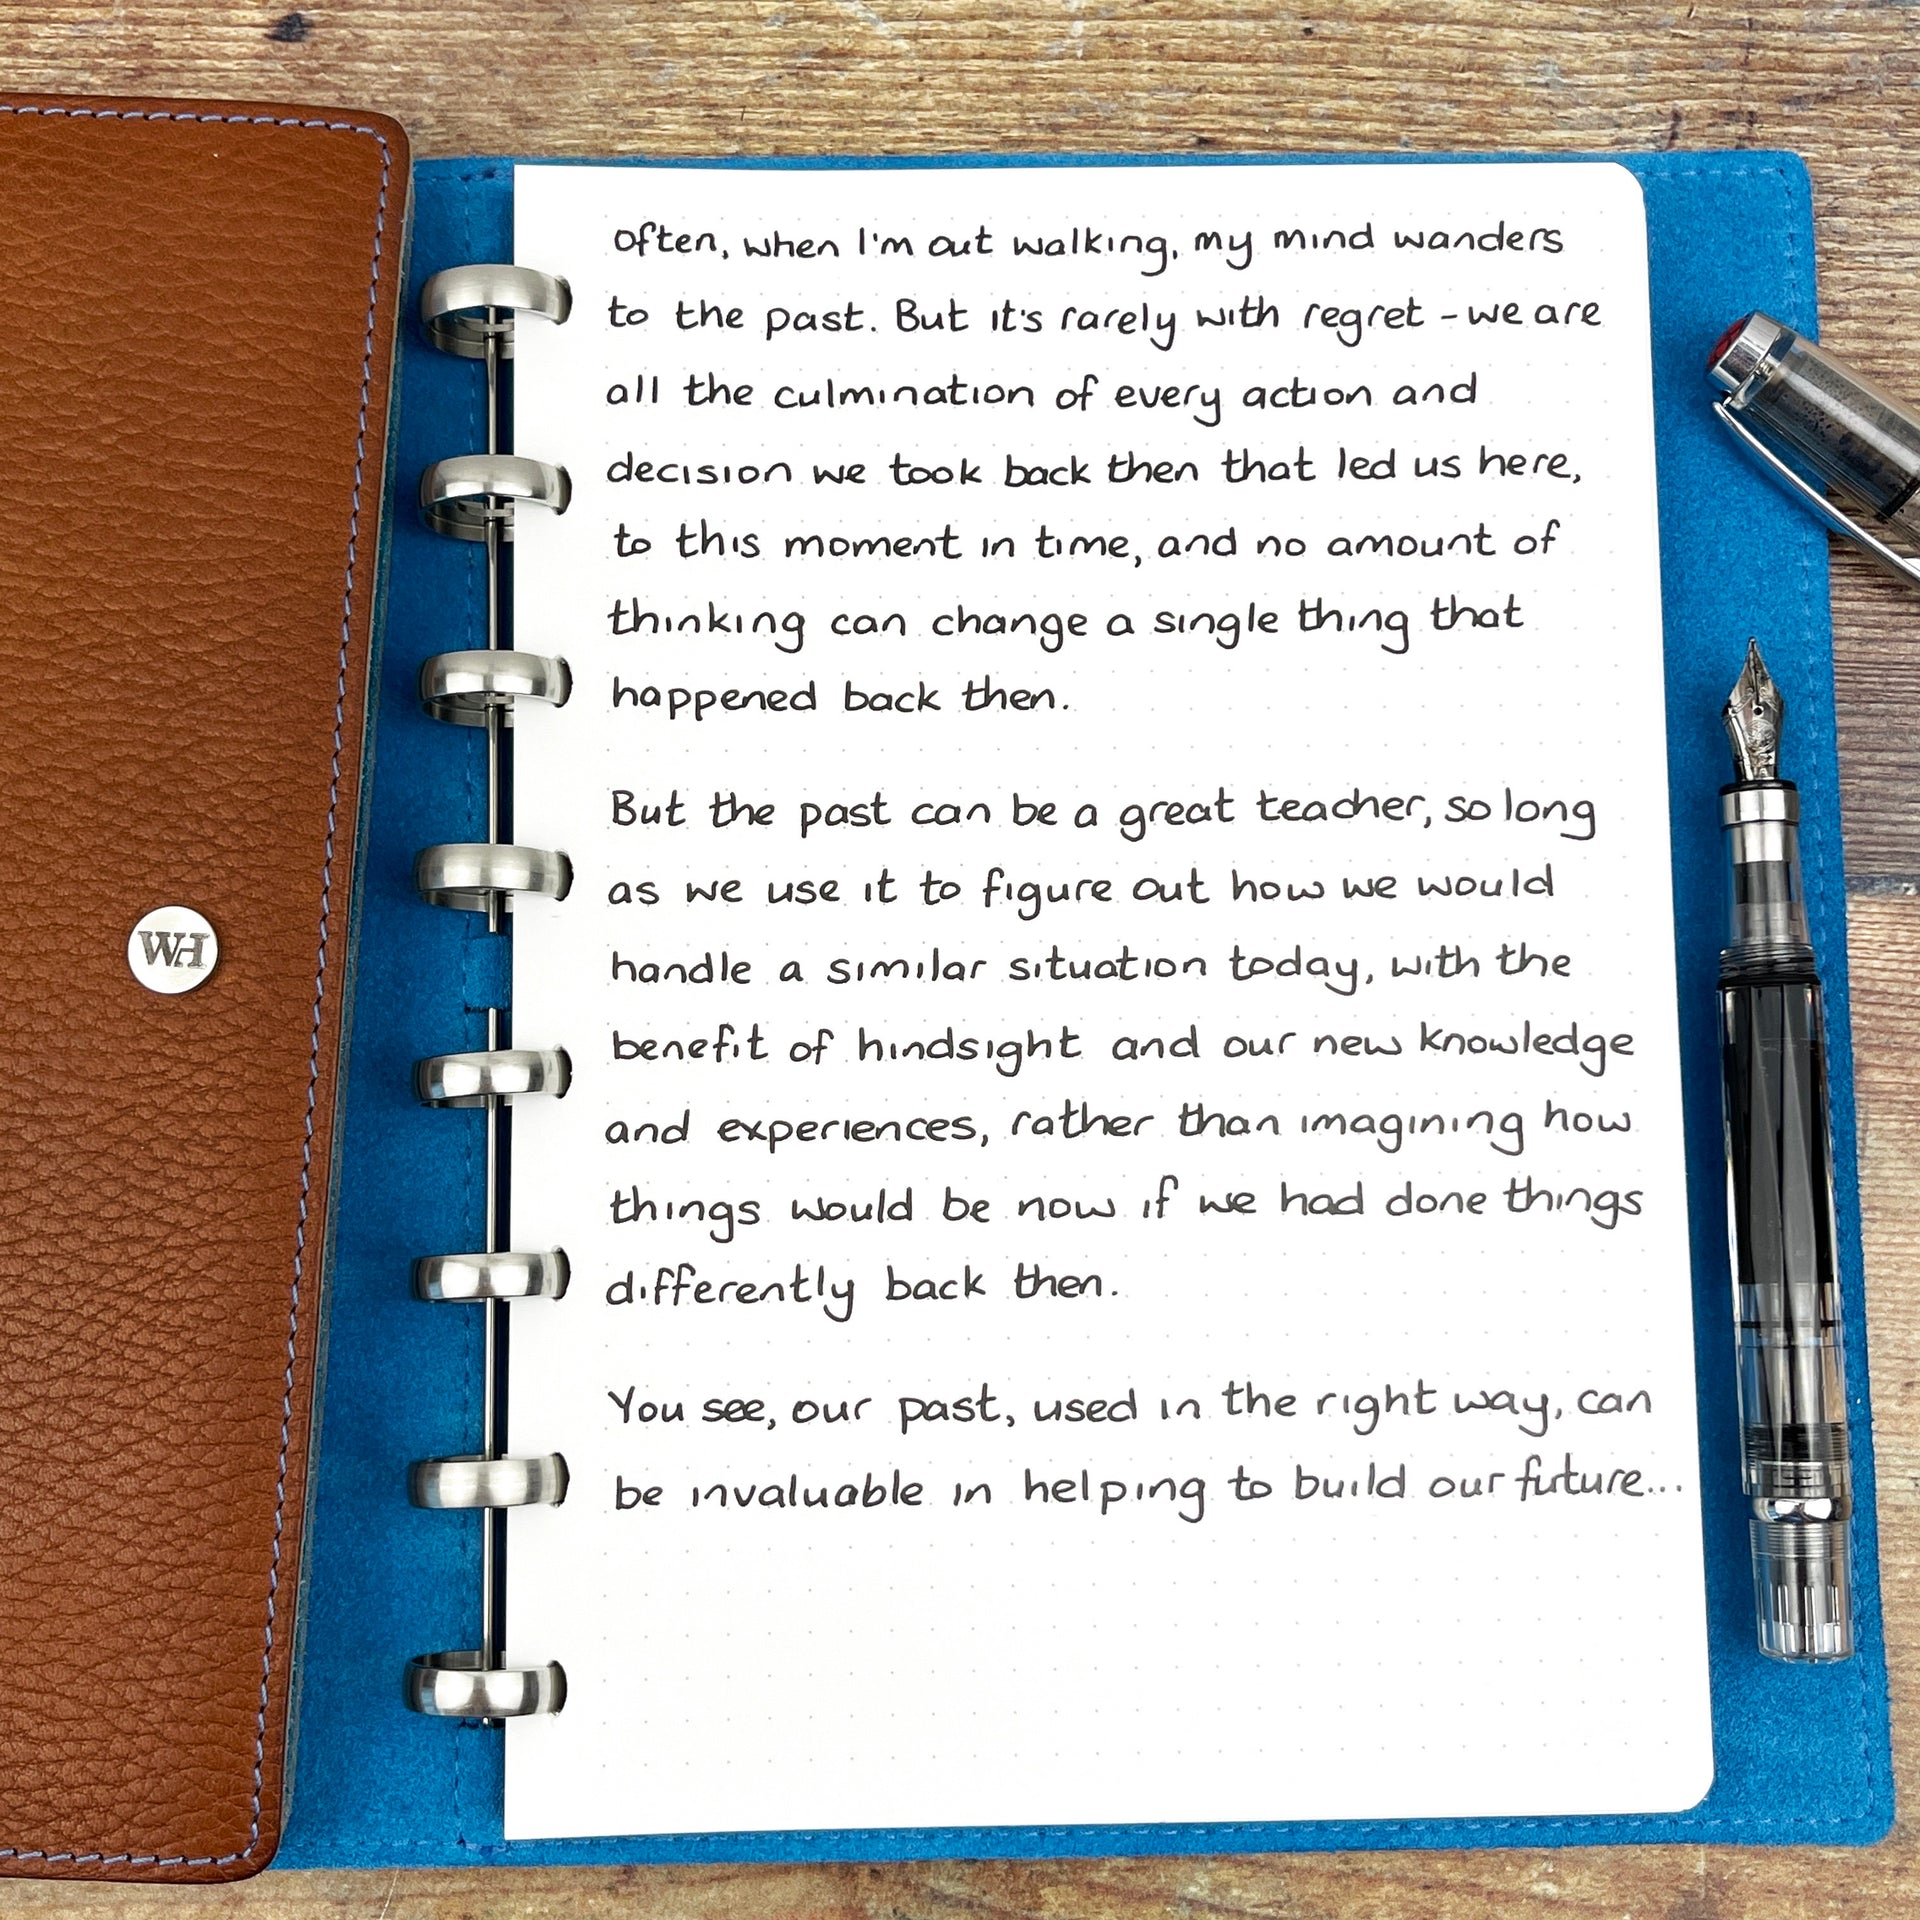 WH
Often, when I'm out walking, my mind wanders
to the past. But it's rarely with regret - we are
all the culmination of every action and
decision we took back then that led us here,
to this moment in time, and no amount of
thinking can change a single thing that
happened back then.
But the past can be a great teacher, so long
as we use it to figure out how we would
handle a similar situation today, with the
benefit of hindsight and our new knowledge
and experiences, rather than imagining how
things would be now if we had done things
differently back then.
You see, our past, used in the right way, can
be invaluable in helping to build our future...